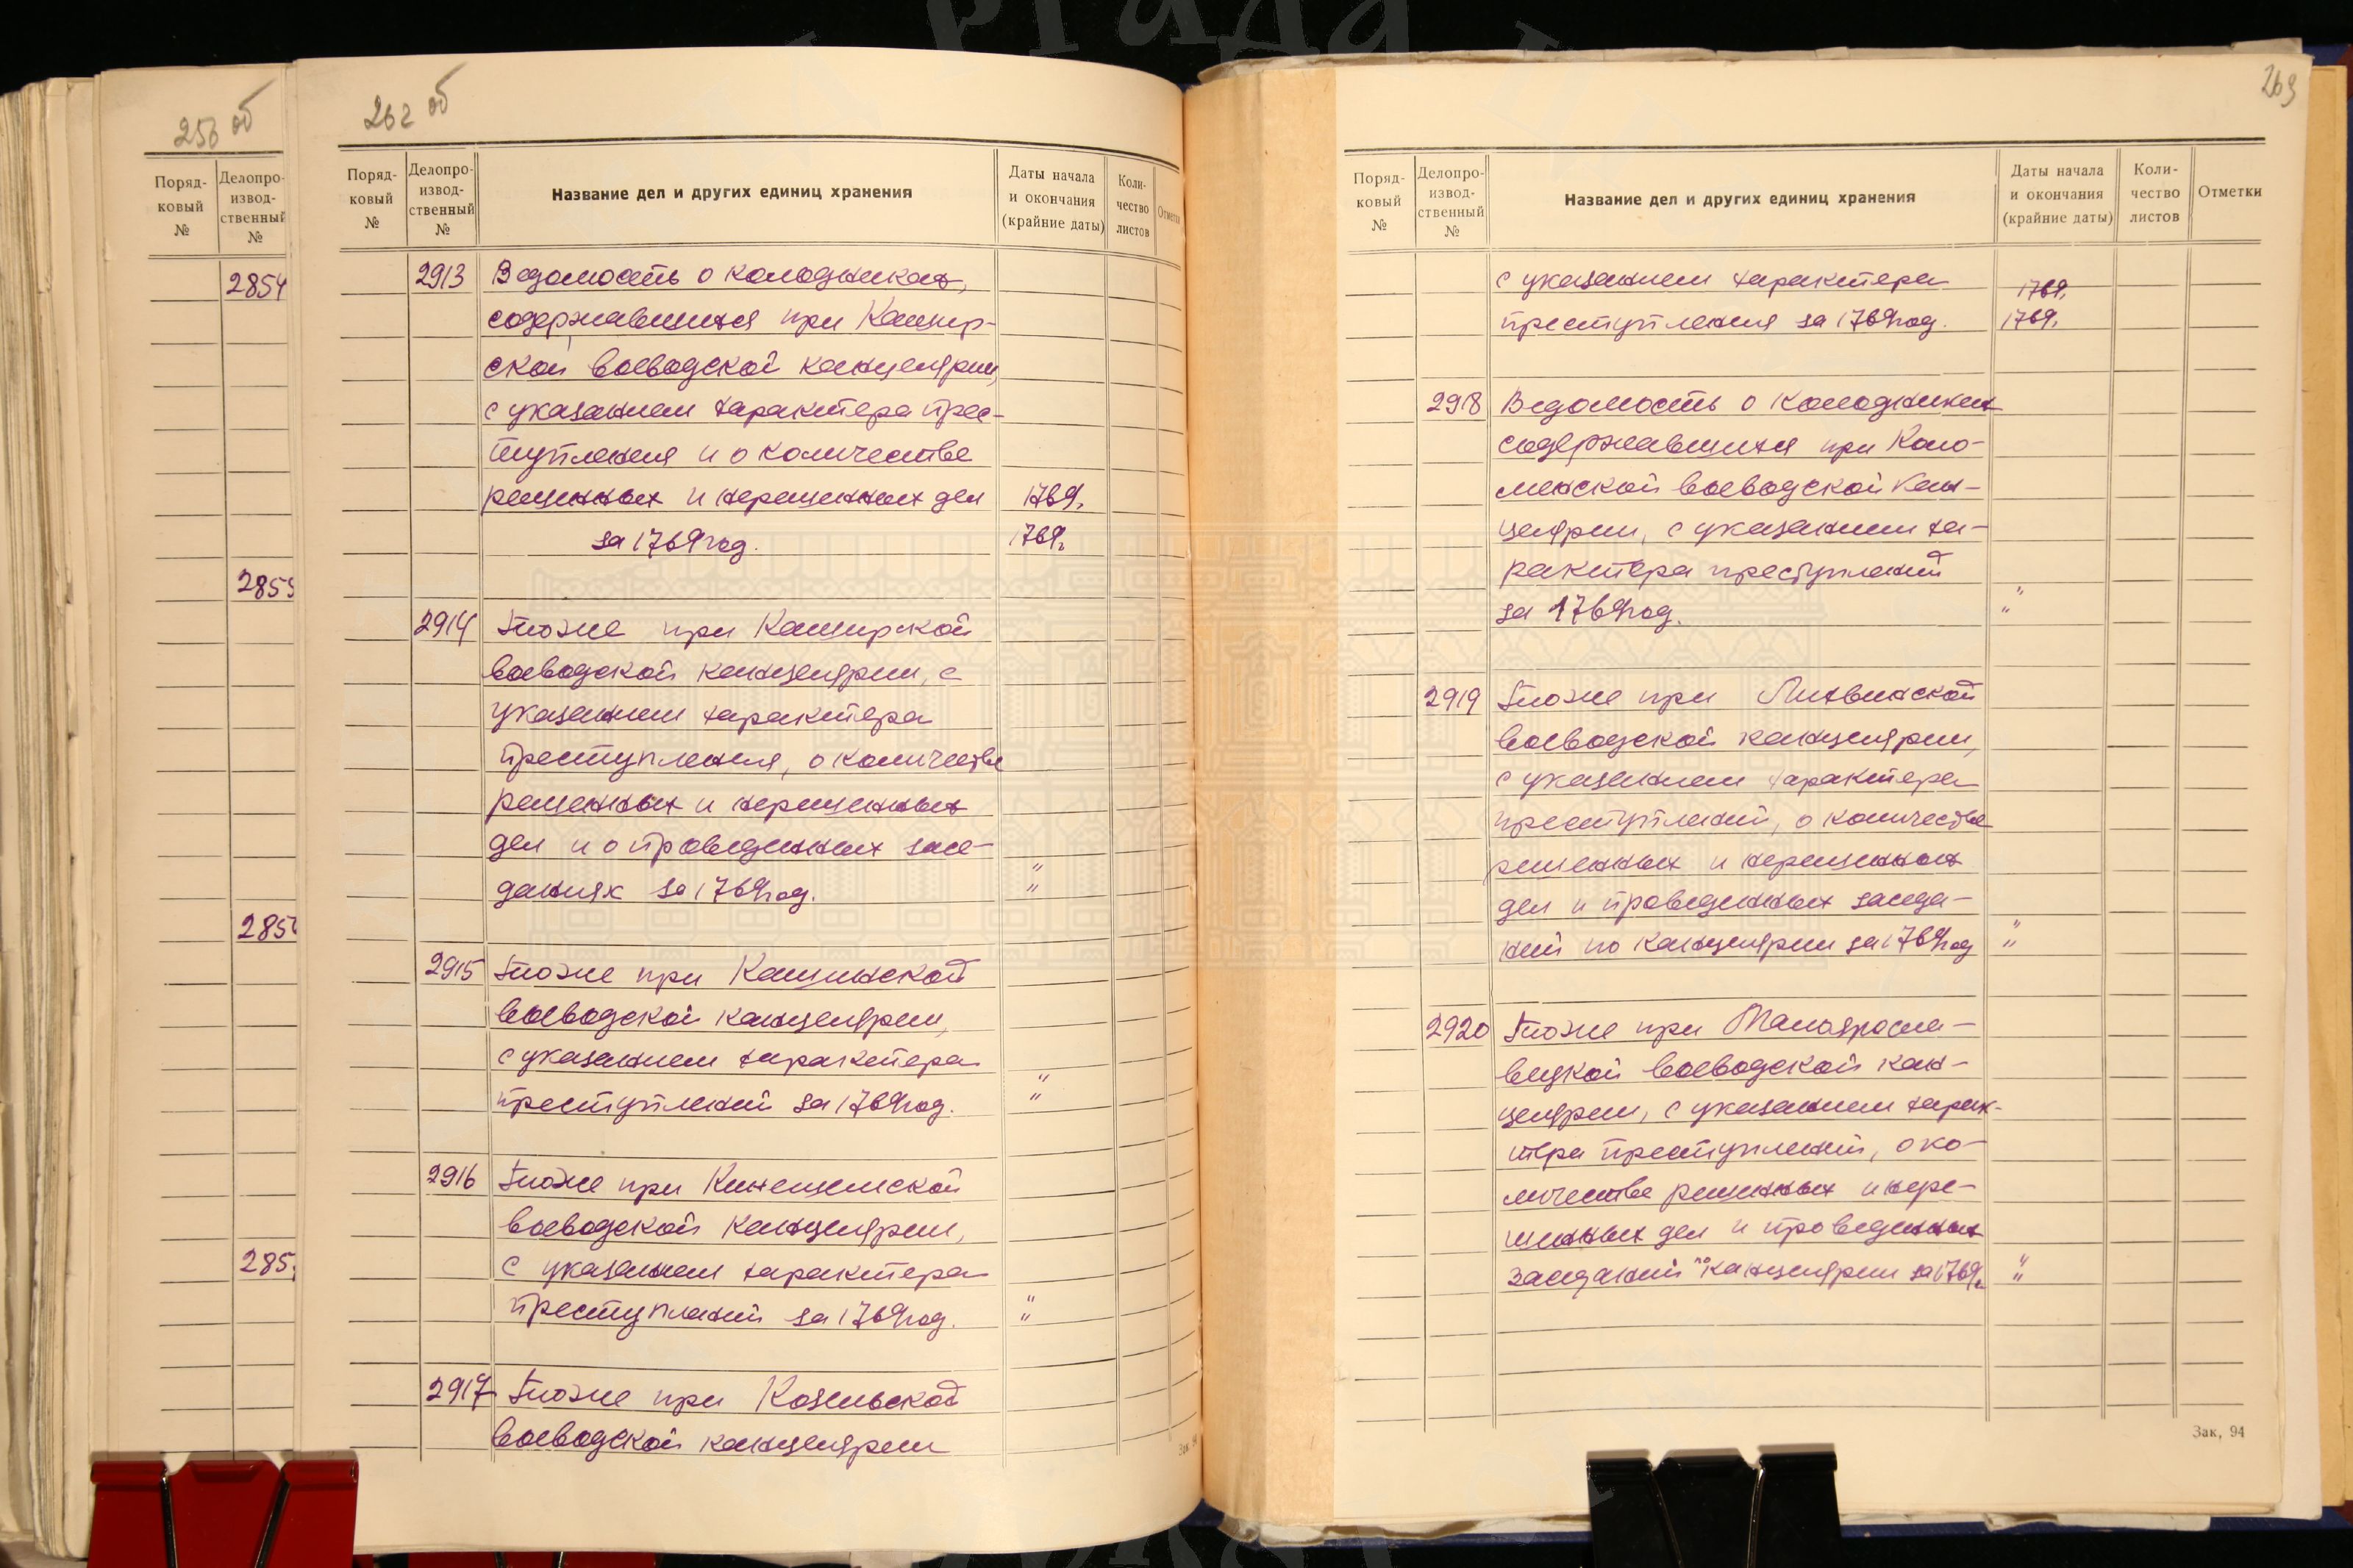 256 об
Поряд-
ковый
№
Делопро-
извод-
ственный
№
2854
2855
285
285
262 об
Поряд-
ковый
№
Делопро-
извод-
ственный
№
Название дел и других единиц хранения
Даты начала
и окончания
(крайние даты)
Коли-
чество
листов
Отметки
2913 Ведомость о колодниках,
содержавшихся при Кашир-
ской воеводской канцелярии,
с указанием характера прес-
тупления и о количестве
решенных и нерешенных дел 1769.
за 1769 год. 1769.
2914 То же при Каширской
воеводской канцелярии, с
указанием характера
преступления, о количестве
решенных и нерешенных
дел и о проведенных засе- "
даниях за 1769 год. "
2915 То же при Кашинской
воеводской канцелярии,
с указанием характера "
преступлений за 1769 год. "
2916 То же при Кинешемской
воеводской канцелярии,
с указанием характера "
преступлений за 1769 год. "
2917 То же при Козельской
воеводской канцелярии
Зак. 94
263
Поряд-
ковый
№
Делопро-
извод-
ственный
№
Название дел и других единиц хранения
Даты начала
и окончания
(крайние даты)
Коли-
чество
листов
Отметки
с указанием характера 1769.
преступления за 1769 год. 1769.
2918 Ведомость о колодниках
содержавшихся при Коло-
менской воеводской кан-
целярии, с указанием ха-
рактера преступлений "
за 1769 год. "
2919 То же при Лихвинской
воеводской канцелярии,
с указанием характера
преступлений, о количестве
решенных и нерешенных
дел и проведенных заседа- "
ний по канцелярии за 1769 год "
2920 То же при Малояросла-
вецкой воеводской кан-
целярии, с указанием харак-
тера преступлений, о ко-
личестве решенных и нере-
шенных дел и проведенных "
заседаний по канцелярии за 1769 г. "
Зак, 94